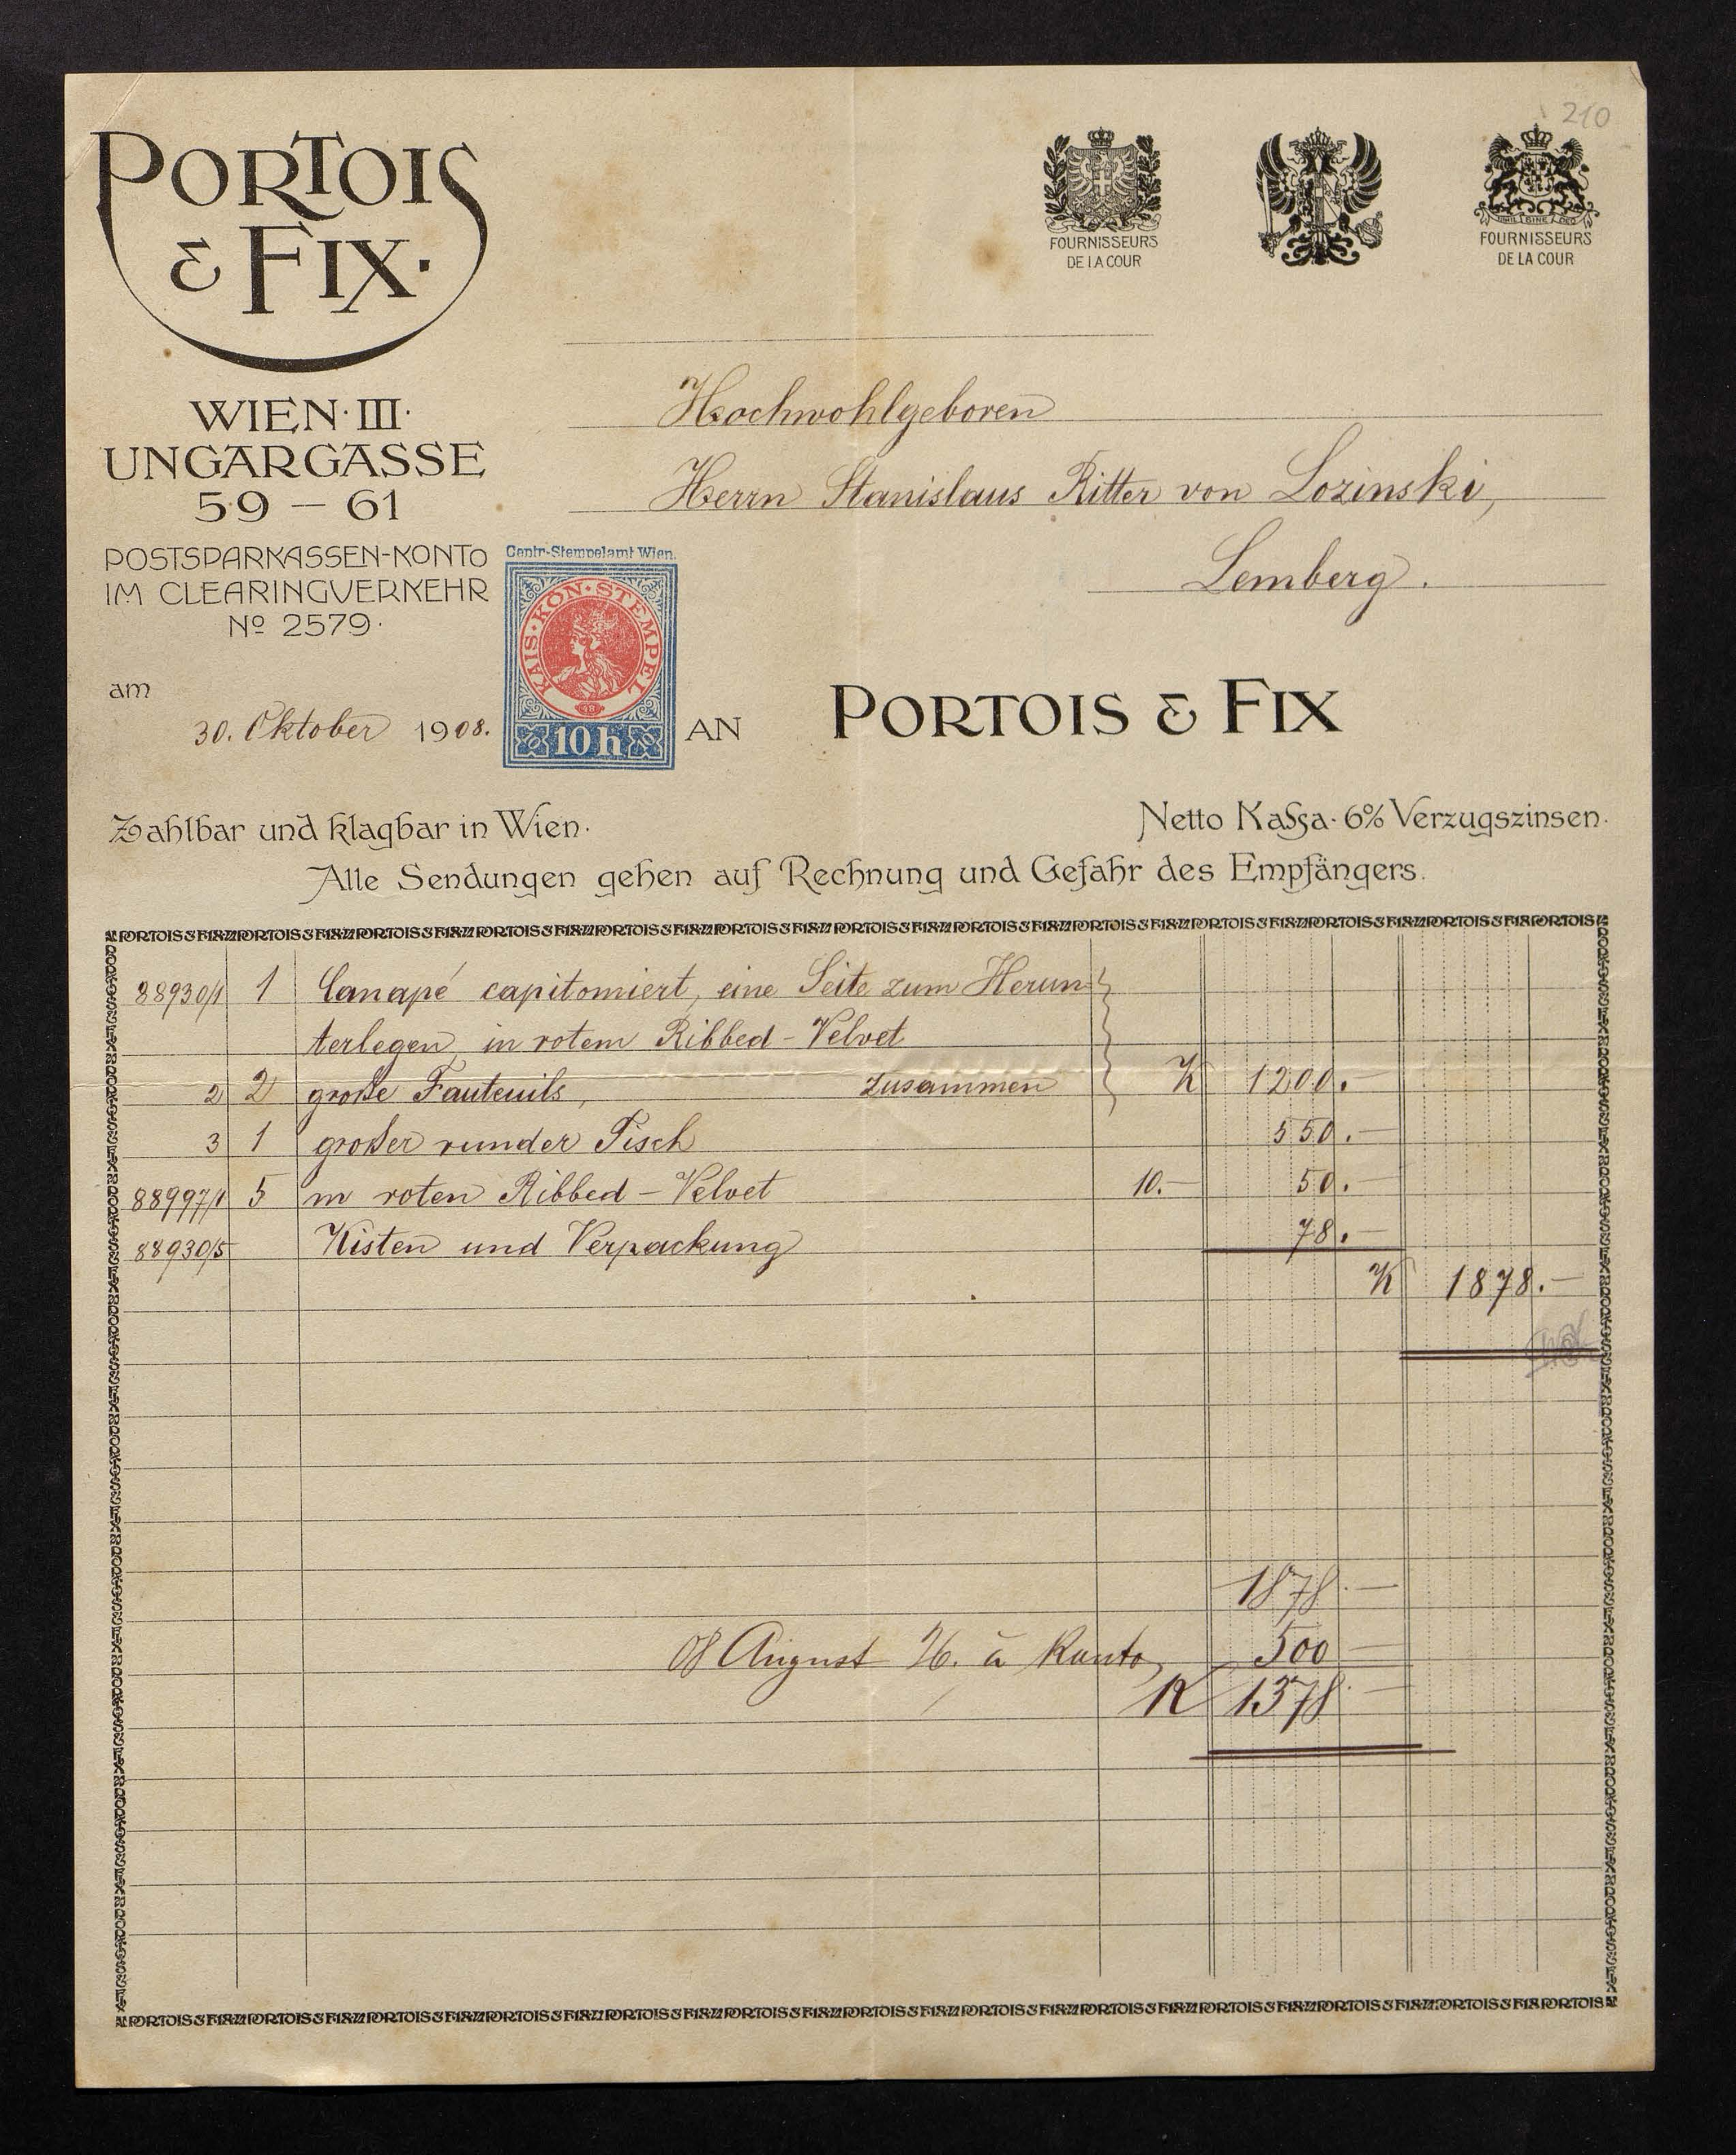 210
PORTOIS
& FIX.
FOURNISSEURS
DE LA COUR
FOURNISSEURS
DE LA COUR
WIEN·III·
UNGARGASSE
59 — 61
POSTSPARKASSEN-KONTO
IM CLEARINGVERKEHR
Nº 2579·
Hochwohlgeboren
Herrn Stanislaus Ritter von Lozinski,
Lemberg.
Centr-Stempelamt Wien.
KAIS·KÖN·STEMPEL
10 h
am
30. Oktober 1908.
AN PORTOIS & FIX
Zahlbar und klagbar in Wien.
Netto Kassa· 6% Verzugszinsen.
Alle Sendungen gehen auf Rechnung und Gefahr des Empfängers.
88930/1 1 Canapé capitomiert, eine Seite zum Herun
terlegen in rotem Ribbed-Velvet
2 2 große Fauteuils, zusammen K 1200.—
3 1 großer runder Tisch 550.—
88997/1 5 m roten Ribbed-Velvet 10.— 50.—
88930/5 Kisten und Verpackung 78.—
K 1878.—
1878.—
08 August 26. à Konto 500 —
K 1378.—